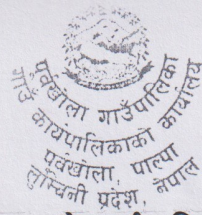 पूर्वखोला गाउँपालिका
गाउँ कार्यपालिकाको कार्यालय
पूर्वखोला, पाल्पा
लुम्बिनी प्रदेश, नेपाल